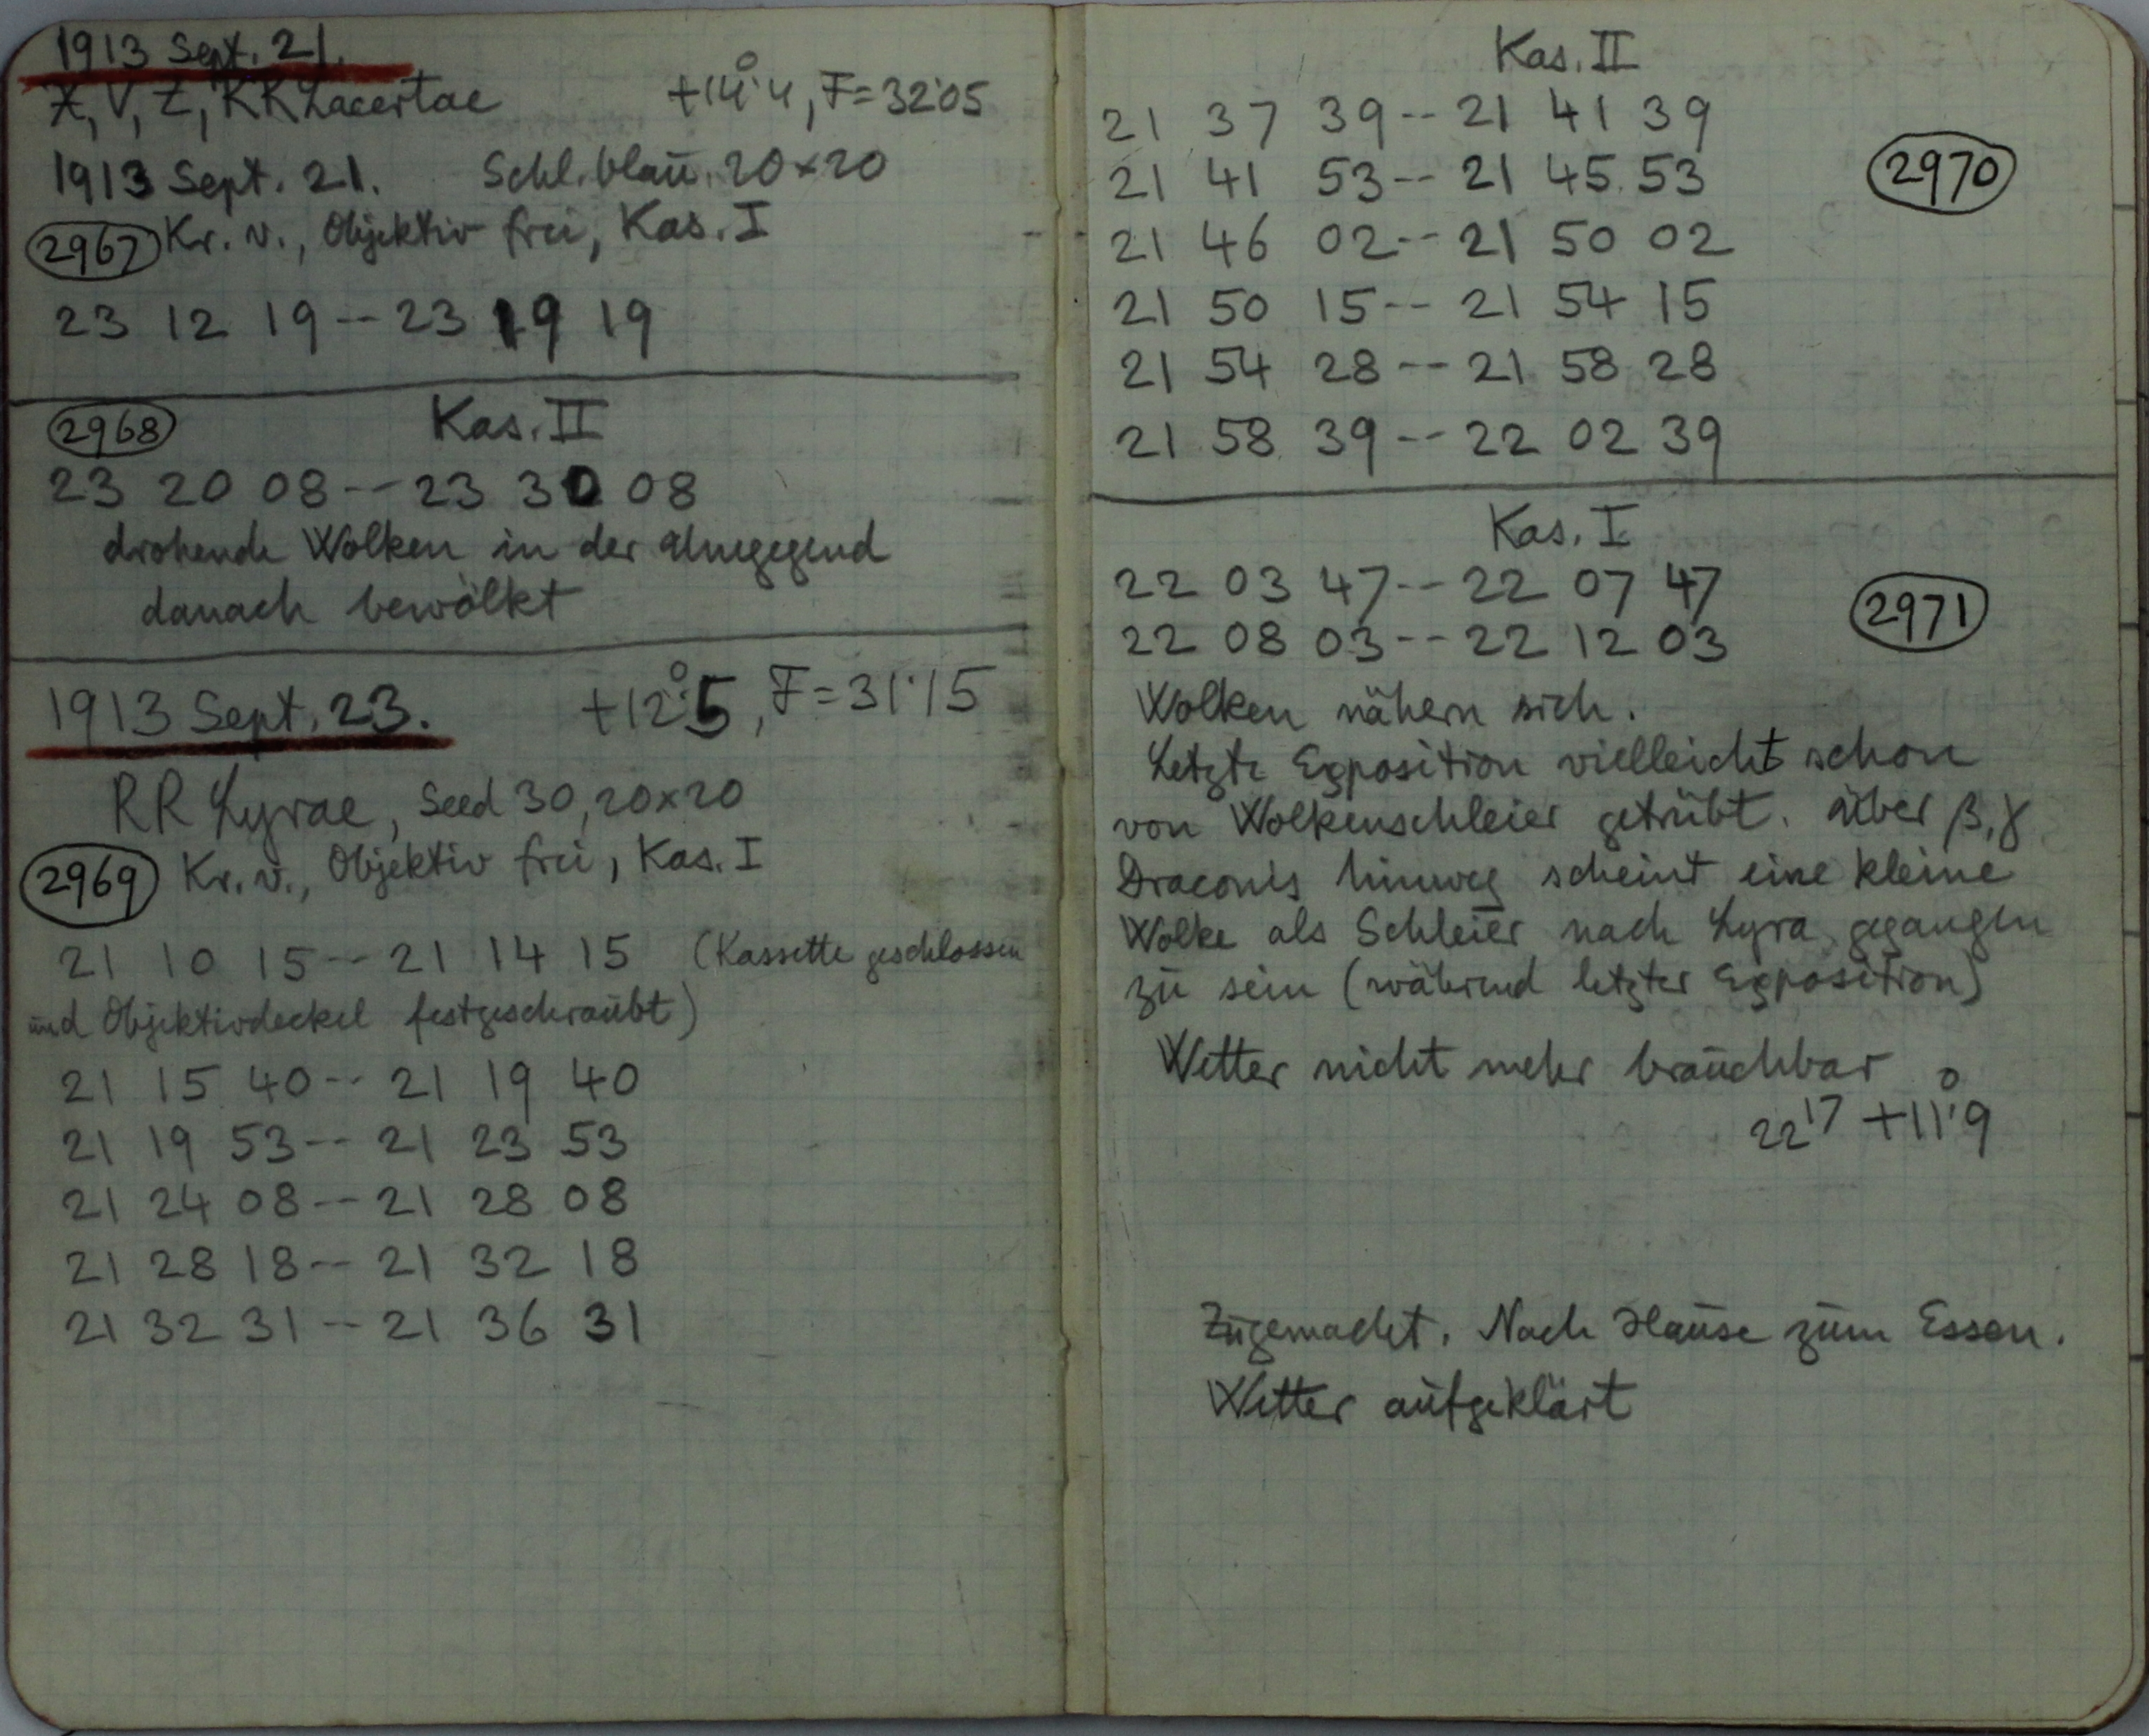 1913 Sept. 21.
X, V, Z, RR Lacertae +14°.4, F=32.05
1913 Sept. 21. Schl. blau. 20×20
2967 Kr. v., Objektiv frei, Kas. I
23 12 19 -- 23 19 19
2968 Kas. II
23 20 08 -- 23 30 08
drohende Wolken in der Umgegend
danach bewölkt
1913 Sept. 23. +12°.5, F=31.15
RR Lyrae, Seed 30, 20×20
2969 Kr. v., Objektiv frei, Kas. I
21 10 15 -- 21 14 15 (Kassette geschlossen
und Objektivdeckel festgeschraubt)
21 15 40 -- 21 19 40
21 19 53 -- 21 23 53
21 24 08 -- 21 28 08
21 28 18 -- 21 32 18
21 32 31 -- 21 36 31
Kas. II
21 37 39 -- 21 41 39
21 41 53 -- 21 45 53 2970
21 46 02 -- 21 50 02
21 50 15 -- 21 54 15
21 54 28 -- 21 58 28
21 58 39 -- 22 02 39
Kas. I
22 03 47 -- 22 07 47
22 08 03 -- 22 12 03 2971
Wolken nähern sich.
Letzte Exposition vielleicht schon
von Wolkenschleier getrübt. Über β, γ
Draconis hinweg scheint eine kleine
Wolke als Schleier nach Lyra gegangen
zu sein (während letzter Exposition)
Wetter nicht mehr brauchbar
22 17 +11°.9
Zugemacht. Nach Hause zum Essen.
Wetter aufgeklärt